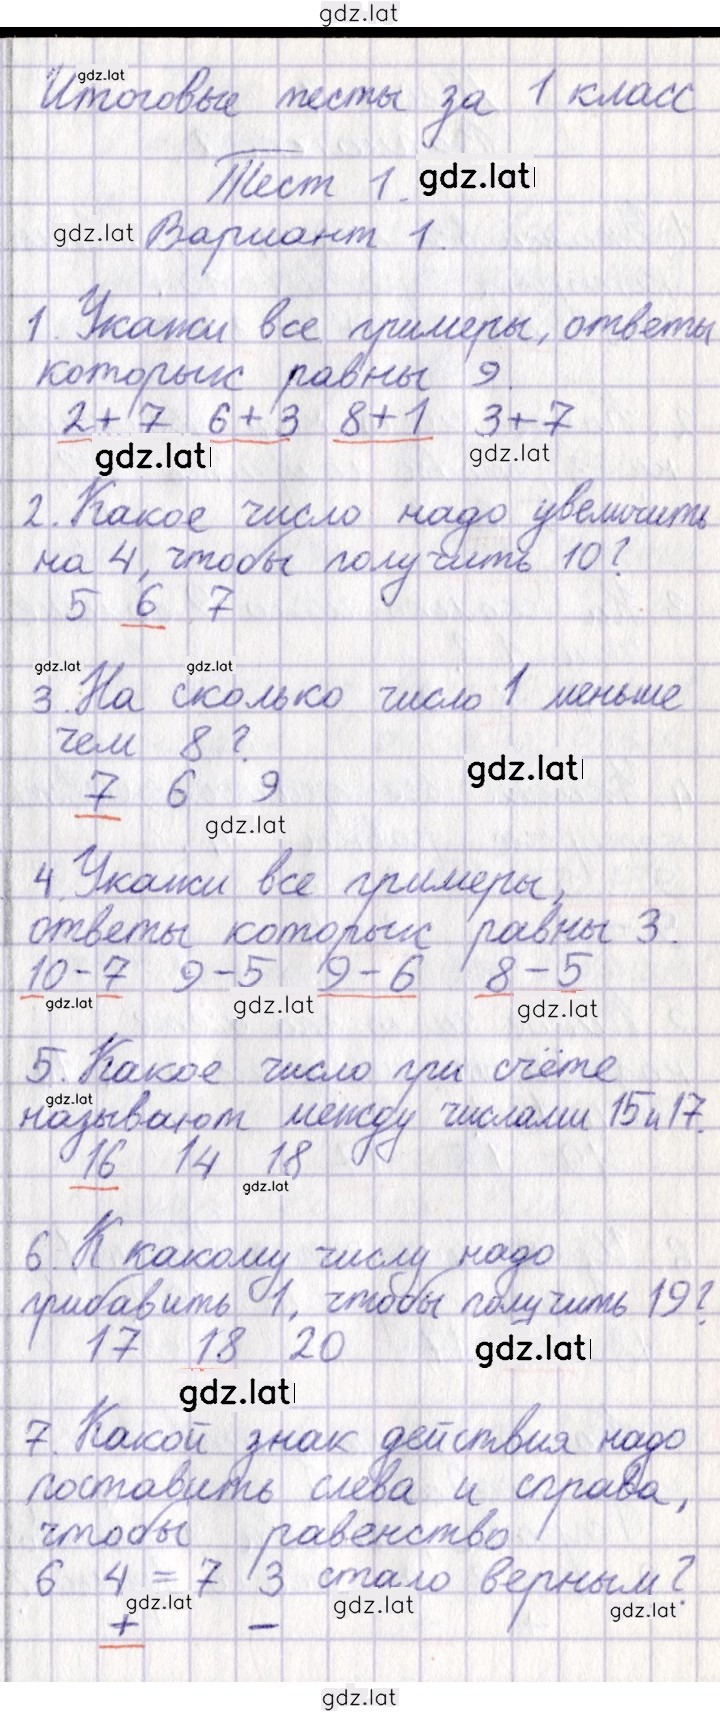 gdz.lat
gdz.lat
Итоговые тесты за 1 класс
Тест 1. gdz.lat
gdz.lat Вариант 1.
1. Укажи все примеры, ответы
которых равны 9.
2+7 6+3 8+1 3+7
gdz.lat gdz.lat
2. Какое число надо увеличить
на 4, чтобы получить 10?
5 6 7
gdz.lat gdz.lat
3. На сколько число 1 меньше
чем 8?
gdz.lat
7 6 9
gdz.lat
4. Укажи все примеры,
ответы которых равны 3.
10-7 9-5 9-6 8-5
gdz.lat gdz.lat gdz.lat
5. Какое число при счёте
gdz.lat
называют между числами 15 и 17.
16 14 18
gdz.lat
6. К какому числу надо
прибавить 1, чтобы получить 19?
17 18 20 gdz.lat
gdz.lat
7. Какой знак действия надо
поставить слева и справа,
чтобы равенство
6 4 = 7 3 стало верным?
gdz.lat gdz.lat gdz.lat
+ -
gdz.lat